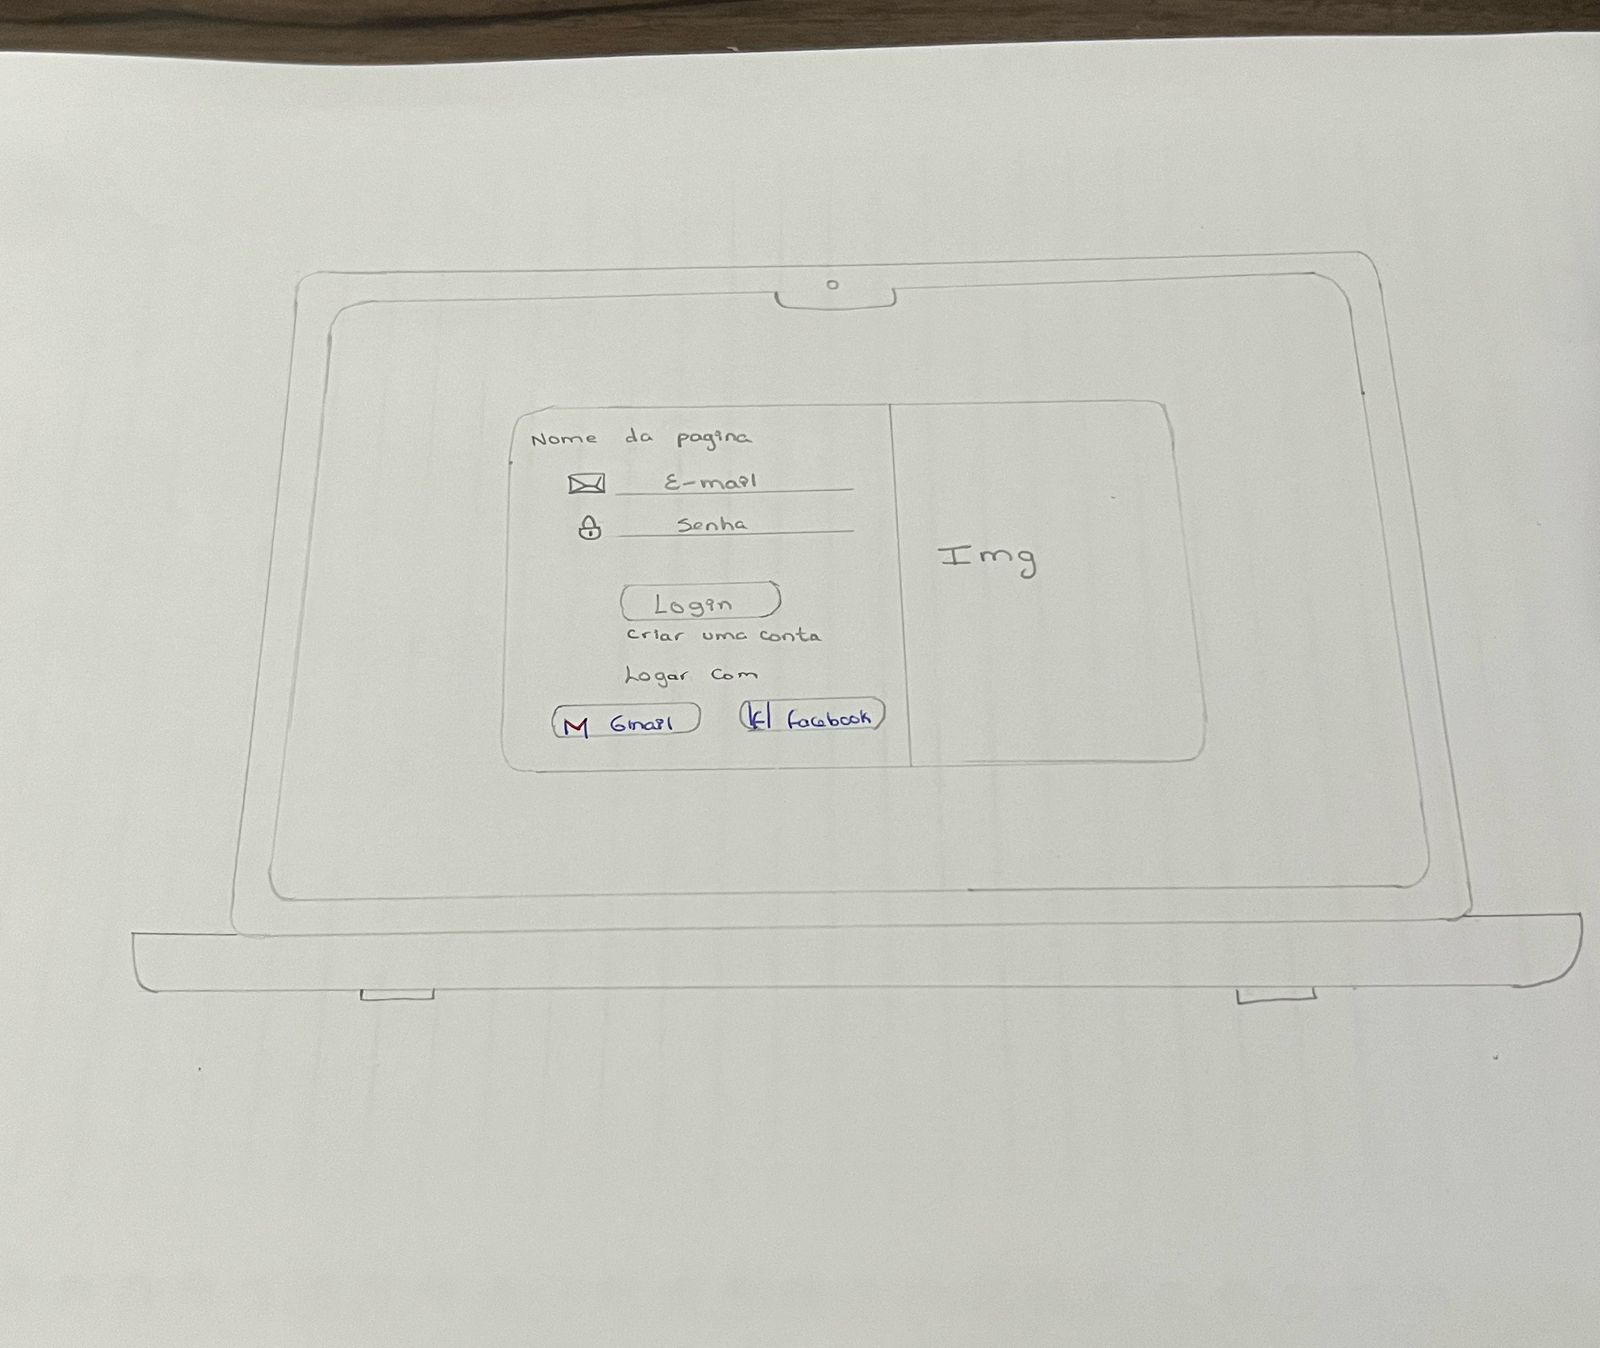 Nome da pagina
E-mail
Senha
Login
criar uma conta
Logar com
M Gmail
F facebook
Img